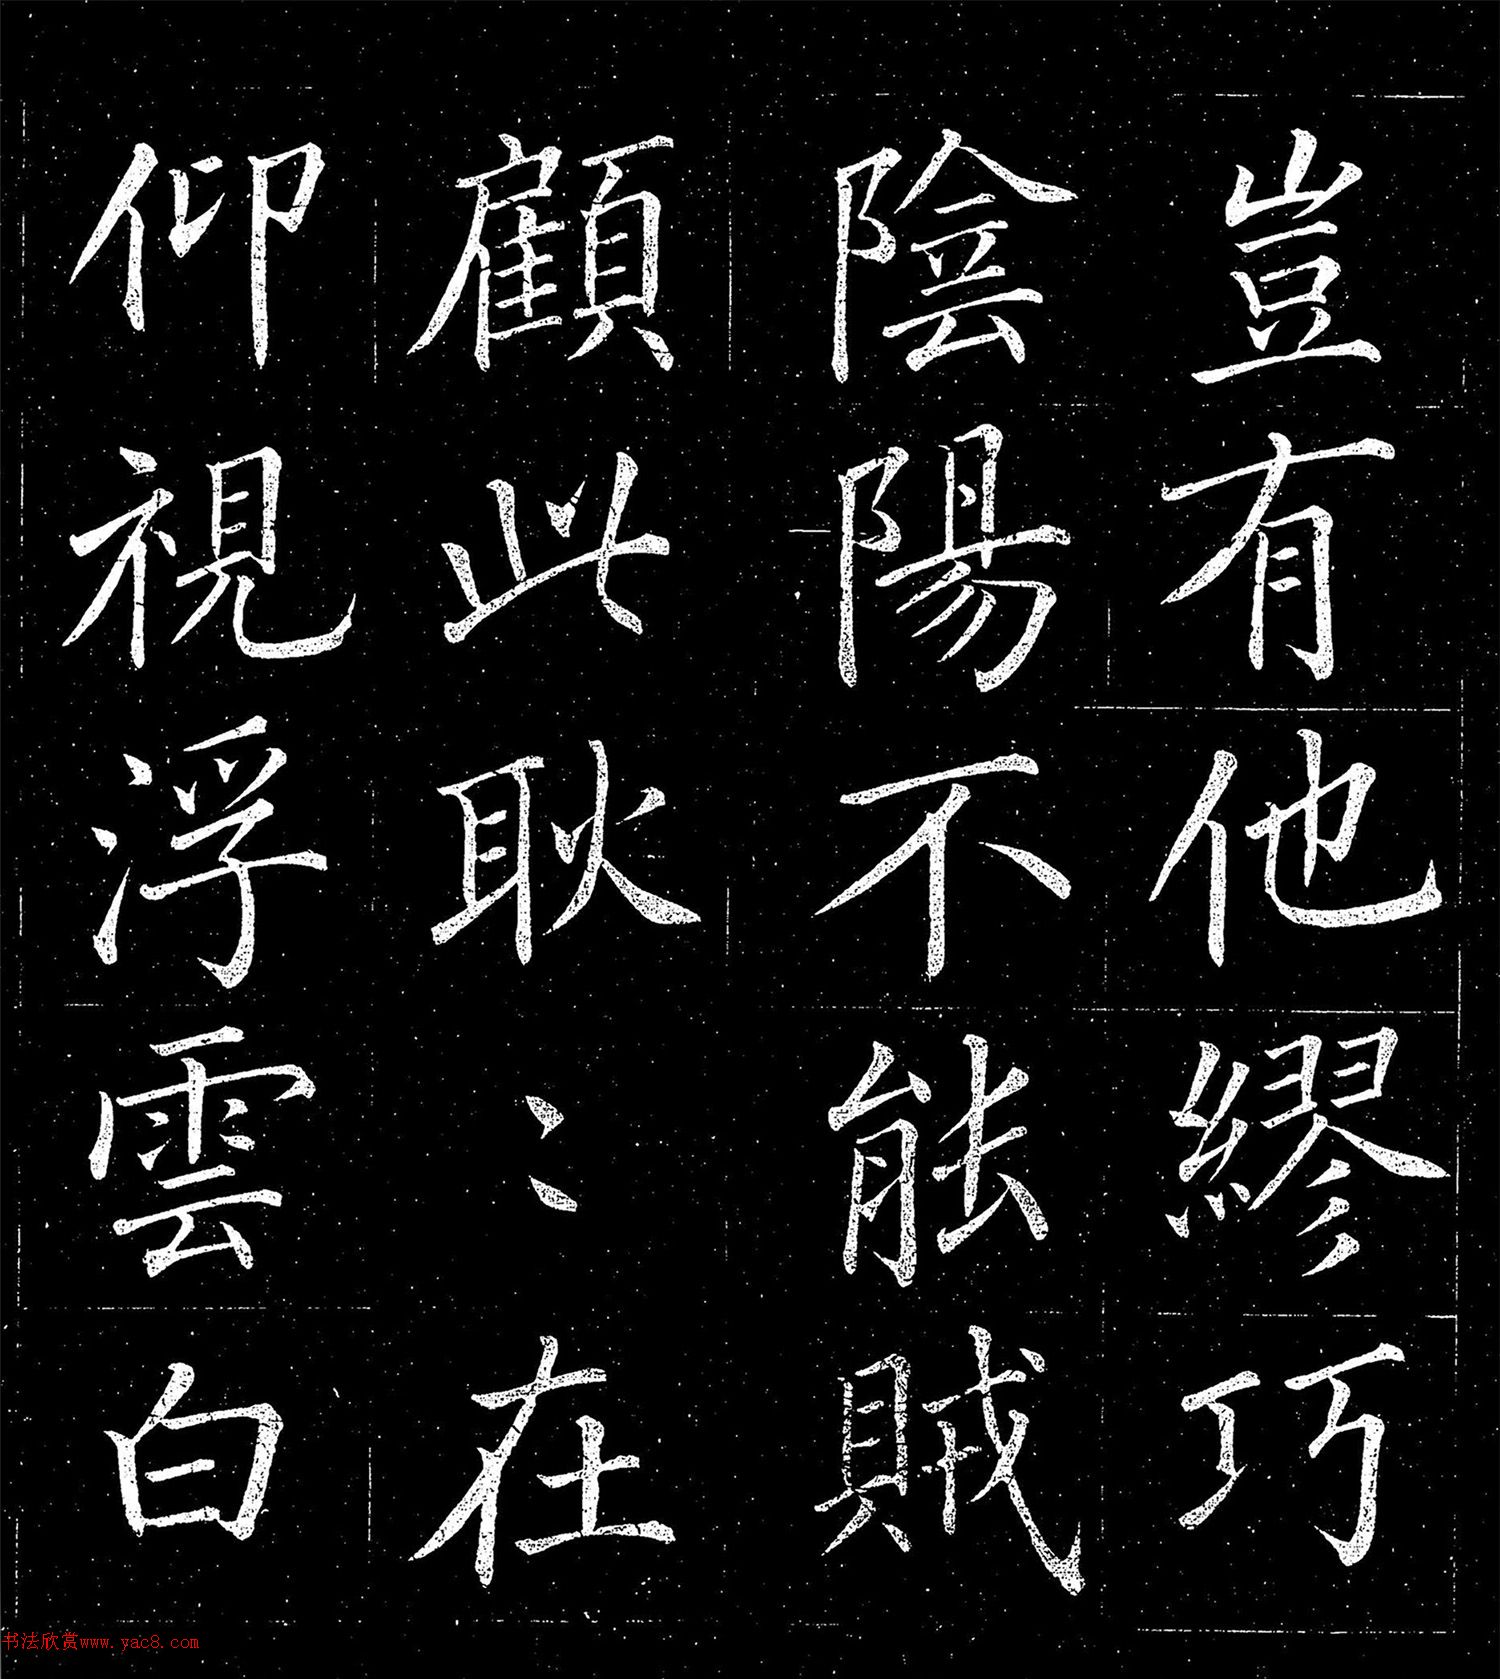 豈有他繆巧
陰陽不能賊
顧此耿〻在
仰視浮雲白
书法欣赏www.yac8.com